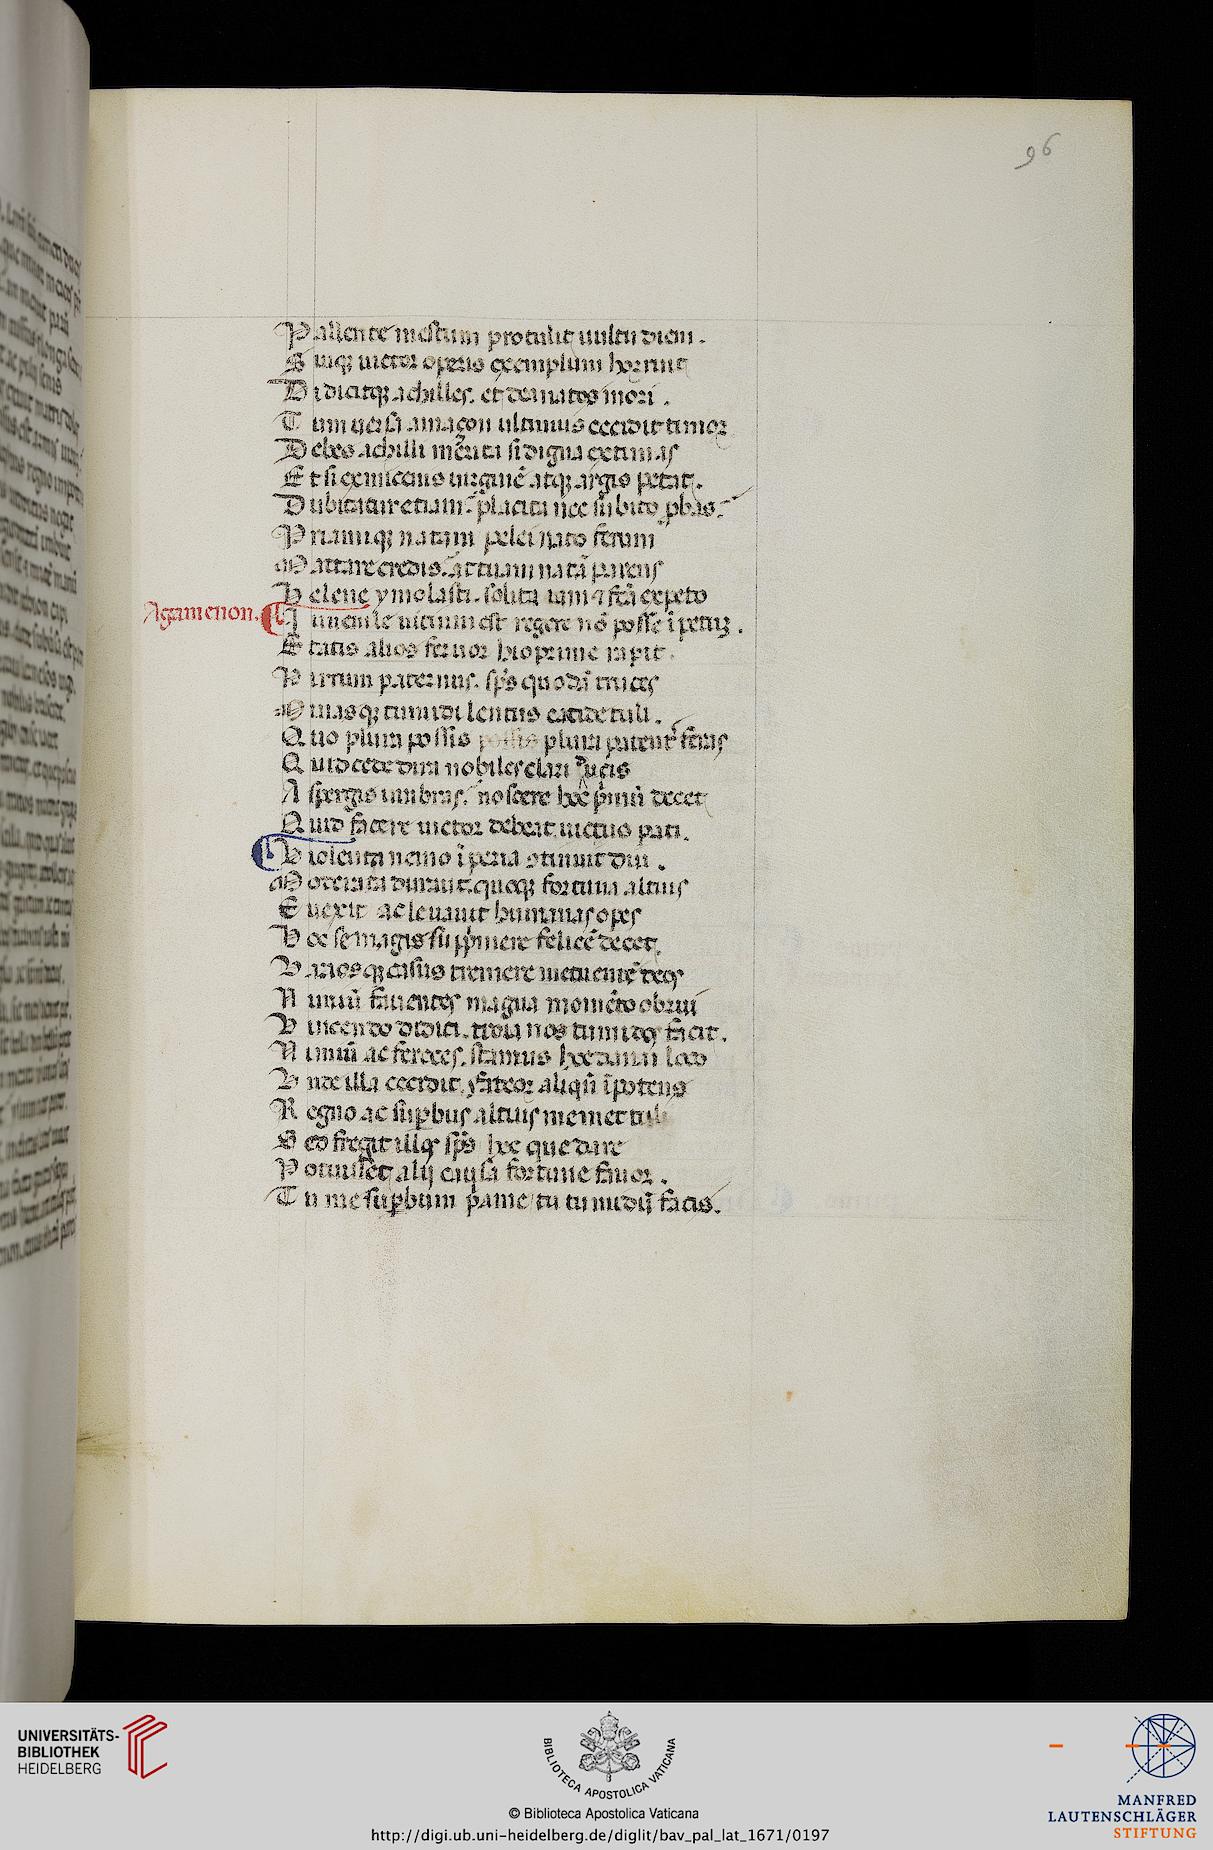 96
Pallente mestum protulit uultu diem.
Suiq; uictor operis exemplum horruit
Didicitq; achilles. et dea natos mori.
Tum uersa amaçon ultimus cecidit timor
Debes achilli merita si digna extimas
Et si ex micenis uirginē atq; argis petat.
Dubitatur etiam. placita nec subito pbas.
Priamiq; natam pelei nato ferum
Mattare credis. at tuam natā parens
Helene ymolasti. solita iam ⁊ fcā expeto
Agamenon.
Iuuenile uicium est regere nō posse īpetum.
Etatis alios feruor hic prime rapit.
Pirrum paternus. sps quodā truces
Minasq; tumidi lentus eacide tuli.
Quo plura possis possis plura patenter feras
Quid cede dira nobiles clari ducis
Aspergis umbras. noscere hoc pmū decet
Quid facere uictor debeat. uictus pati.
Violenta nemo īperia otinuit diu.
Moderata durant. quoq; fortuna altius
Euexit ac leuauit humanas opes
Hoc se magis supp̄mere felicē decet.
Variosq; casus tremere metuentē deos
Nimiū fauentes magna momēto obrui
Vincendo didici. troia nos tumidos facit.
Nimiū ac feroces. stamus hoc danai loco
Vnde illa cecidit. fateor aliqn̄ īpotens
Regno ac supbus altius memet tuli
Sed fregit illos sps hec que dare
Potuisset alij causa fortune fauor.
Tu me supbum pame tu tumidū facis.
UNIVERSITÄTS-
BIBLIOTHEK
HEIDELBERG
BIBLIOTECA APOSTOLICA VATICANA
© Biblioteca Apostolica Vaticana
http://digi.ub.uni-heidelberg.de/diglit/bav_pal_lat_1671/0197
MANFRED
LAUTENSCHLÄGER
STIFTUNG